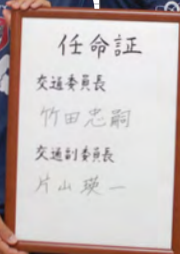 任命証
交通委員長
竹田忠嗣
交通副委員長
片山瑛一